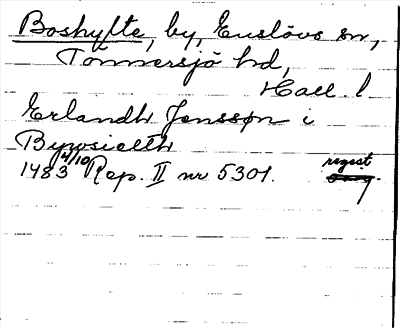 Boshylte, by, Enslövs sn,
Tönnersjö hd,
Hall. l
Erlandh Jensson i
Bywsielth
1483 4/10 Rep. II nr 5301. regest
orig.